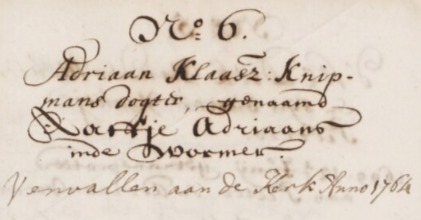 No: 6.
Adriaan Klaasz: Knip-
mans dogter, genaamd
Aattje Adriaans
inde Wormer.
Vervallen aan de Kerk Anno 1764